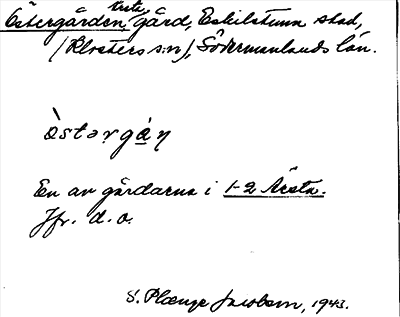 Östergården, gård, Eskilstuna stad,
(Klosters s:n), Södermanlands län.
östərgạ̊ṇ
En av gårdarna i 1-2 Årsta.
Jfr. d. o.
S. Plænge Jacobson, 1943.